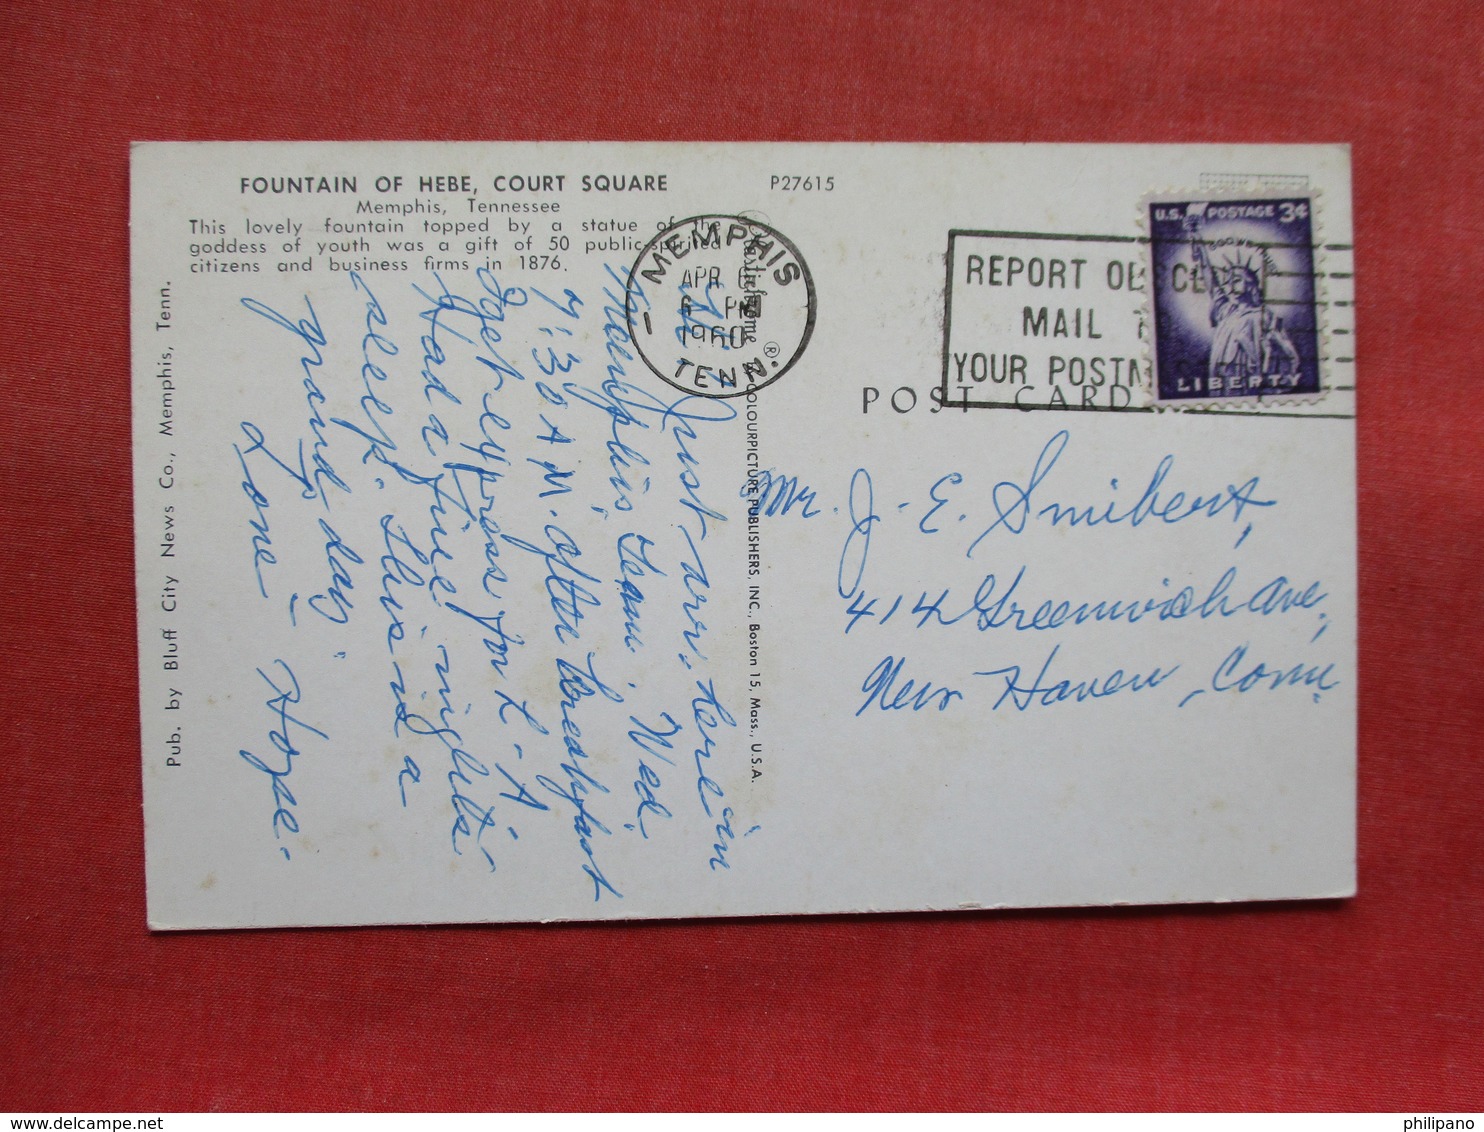 FOUNTAIN OF HEBE, COURT SQUARE
Memphis, Tennessee
This lovely fountain topped by a statue of the
goddess of youth was a gift of 50 public-spirited
citizens and business firms in 1876.
P27615
Pub. by Bluff City News Co., Memphis, Tenn.
Plastichrome ® by COLOURPICTURE PUBLISHERS, INC., Boston 15, Mass., U.S.A.
MEMPHIS
APR 6
PM
1960
TENN.
REPORT OBSCENE
MAIL
YOUR POSTM
U.S. POSTAGE 3¢
IN GOD WE TRUST
LIBERTY
POST CARD
Hi: Just arr. here in
Memphis, Tenn. Wed.
7:30 A.M. After breakfast
I get express for L-A.
Had a fine nights-
sleep. This is a
grand day.
Love - Hope.
Mr. J. E. Smibert,
414 Greenwich Ave.,
New Haven, Conn.
philipano